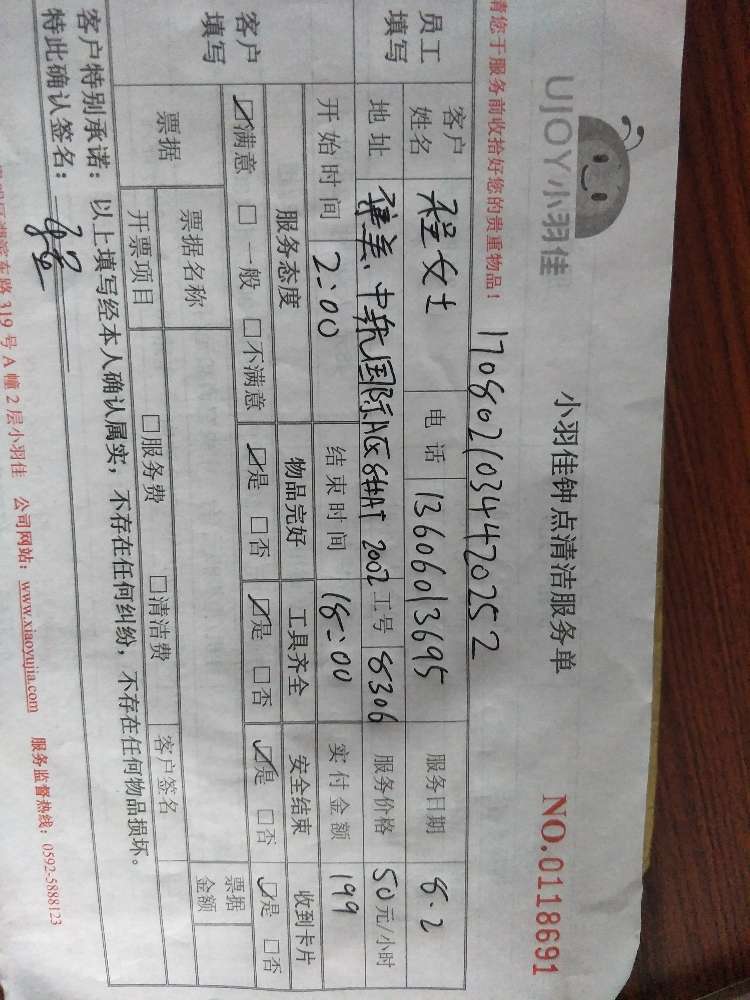 UJOY小羽佳
小羽佳钟点清洁服务单
NO.0118691
请您于服务前收拾好您的贵重物品！
1708021034420252
员工填写 客户姓名 程女士 电话 13606013695 服务日期 8.2
地址 中航国际 2002 工号 8306 服务价格 50元/小时
开始时间 2:00 结束时间 18:00 实付金额 199
客户填写 服务态度 物品完好 工具齐全 安全结束 收到卡片
☑满意 □一般 □不满意 ☑是 □否 ☑是 □否 ☑是 □否 ☑是 □否
票据 票据名称 票据金额
开票项目 □服务费 □清洁费 客户签名
客户特别承诺：以上填写经本人确认属实，不存在任何纠纷，不存在任何物品损坏。
特此确认签名：
东路319号A幢2层小羽佳 公司网站：www.xiaoyujia.com 服务监督热线：0592-5888123